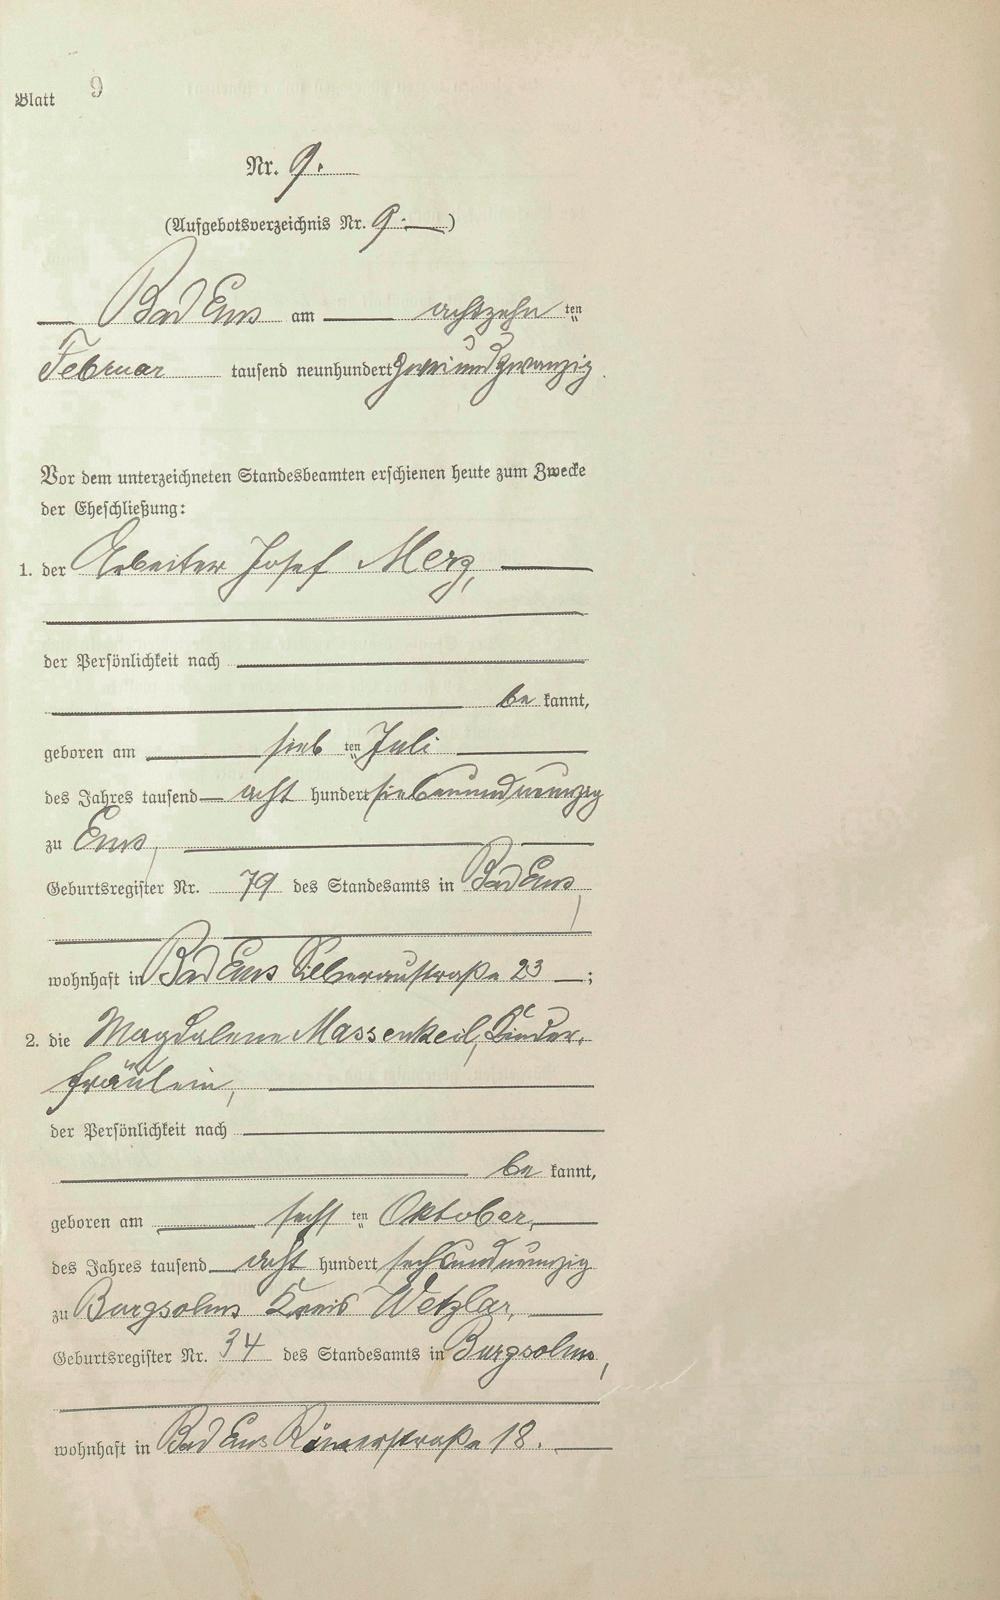 Blatt 9
Nr. 9.
(Aufgebotsverzeichnis Nr. 9.)
Bad Ems am achtzehn ten
Februar tausend neunhundert zweiundzwanzig.
Vor dem unterzeichneten Standesbeamten erschienen heute zum Zwecke
der Eheschließung:
1. der Arbeiter Josef Merz,
der Persönlichkeit nach
be kannt,
geboren am sieb ten Juli
des Jahres tausend acht hundert siebenundneunzig
zu Ems,
Geburtsregister Nr. 79 des Standesamts in Bad Ems,
wohnhaft in Bad Ems Silberaustraße 23 ;
2. die Magdalene Massenkeil, Kinder-
fräulein,
der Persönlichkeit nach
be kannt,
geboren am sechs ten Oktober,
des Jahres tausend acht hundert sechsundneunzig
zu Burgsolms Kreis Wetzlar,
Geburtsregister Nr. 34 des Standesamts in Burgsolms,
wohnhaft in Bad Ems Römerstraße 18.